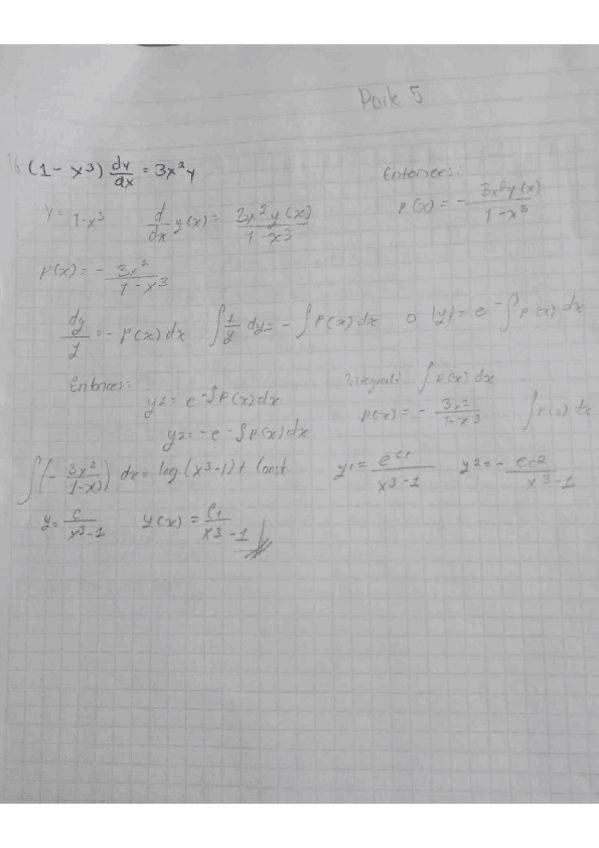 Parte 5
(1 - x³) dy/dx = 3x²y
Entonces:
1-x³ d/dx y(x) = 3x²y(x)/1-x³
P(x) = - 3x²y(x)/1-x³
P(x) = - 3x²/1-x³
dy/y = - P(x) dx ∫ 1/y dy = - ∫ P(x) dx o |y| = e - ∫ P(x) dx
Entonces:
y1 = e -∫P(x)dx
y2 = -e -∫P(x)dx
Integral: ∫ P(x) dx
P(x) = - 3x²/1-x³ ∫ P(x) dx
∫(- 3x²/1-x³) dx = log (x³-1) + Const
y1 = e^c1/x³-1 y2 = - e^c2/x³-1
y = c/x³-1 y(x) = c1/x³-1